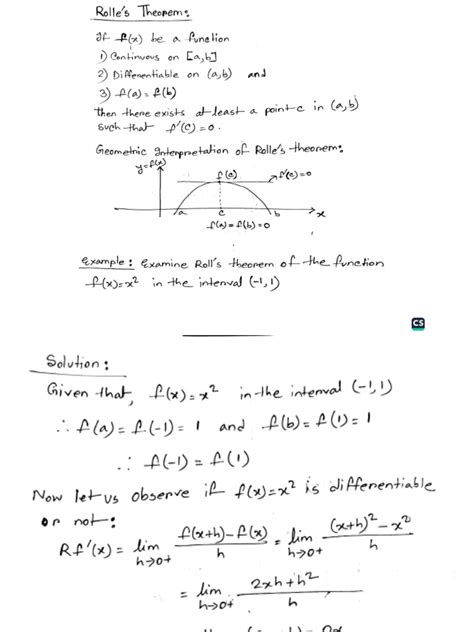 Rolle's Theorem:
If f(x) be a function
1) Continuous on [a,b]
2) Differentiable on (a,b) and
3) f(a) = f(b)
then there exists at least a point c in (a,b)
such that f'(c) = 0.
Geometric Interpretation of Rolle's theorem:
y=f(x)
f(c)
f'(c)=0
a c b x
f(a) = f(b) = 0
Example: Examine Roll's theorem of the function
f(x)=x² in the interval (-1,1)
CS
Solution:
Given that, f(x) = x² in the interval (-1,1)
∴ f(a) = f(-1) = 1 and f(b) = f(1) = 1
∴ f(-1) = f(1)
Now let us observe if f(x)=x² is differentiable
or not:
Rf'(x) = lim h→0+ f(x+h)-f(x)/h = lim h→0+ (x+h)²-x²/h
= lim h→0+ 2xh+h²/h